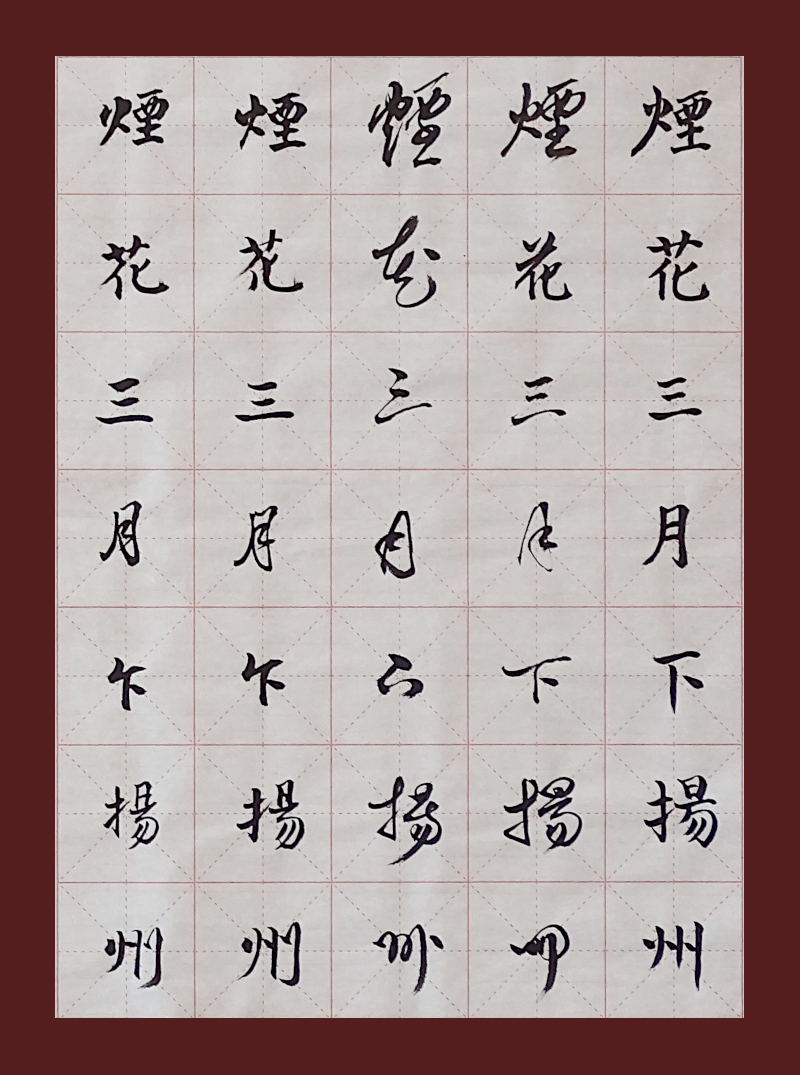 煙花三月下揚州
煙花三月下揚州
煙花三月下揚州
煙花三月下揚州
煙花三月下揚州